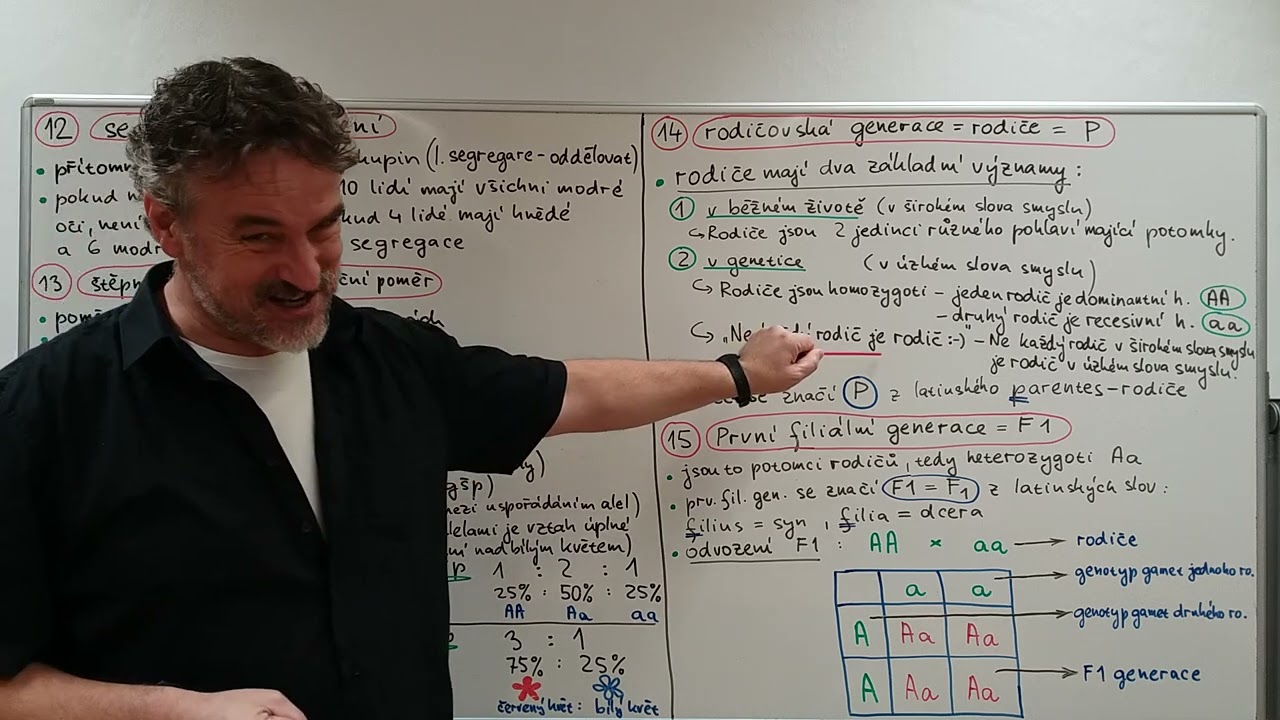 12
přítomn
kupin (l. segregare - oddělovat)
pokud
10 lidí mají všichni modré
oči, není
kud 4 lidé mají hnědé
a 6 modr
segregace
13 štěpn
ční poměr
mezi uspořádáním alel)
lelami je vztah úplné
ní nad bílým květem)
1 : 2 : 1
25% : 50% : 25%
AA Aa aa
3 : 1
75% : 25%
červený květ : bílý květ
14 rodičovská generace = rodiče = P
• rodiče mají dva základní významy:
1 v běžném životě (v širokém slova smyslu)
↳ Rodiče jsou 2 jedinci různého pohlaví mající potomky.
2 v genetice (v úzkém slova smyslu)
↳ Rodiče jsou homozygoti – jeden rodič je dominantní h. AA
– druhý rodič je recesivní h. aa
↳ „Ne rodič je rodič :-)" – Ne každý rodič v širokém slova smyslu
je rodič v úzkém slova smyslu.
se značí P z latinského parentes - rodiče
15 První filiální generace = F1
• jsou to potomci rodičů, tedy heterozygoti Aa
• prv. fil. gen. se značí F1 = F₁ z latinských slov:
filius = syn, filia = dcera
• odvození F1 : AA × aa → rodiče
a a → genotyp gamet jednoho ro.
→ genotyp gamet druhého ro.
A Aa Aa
A Aa Aa → F1 generace